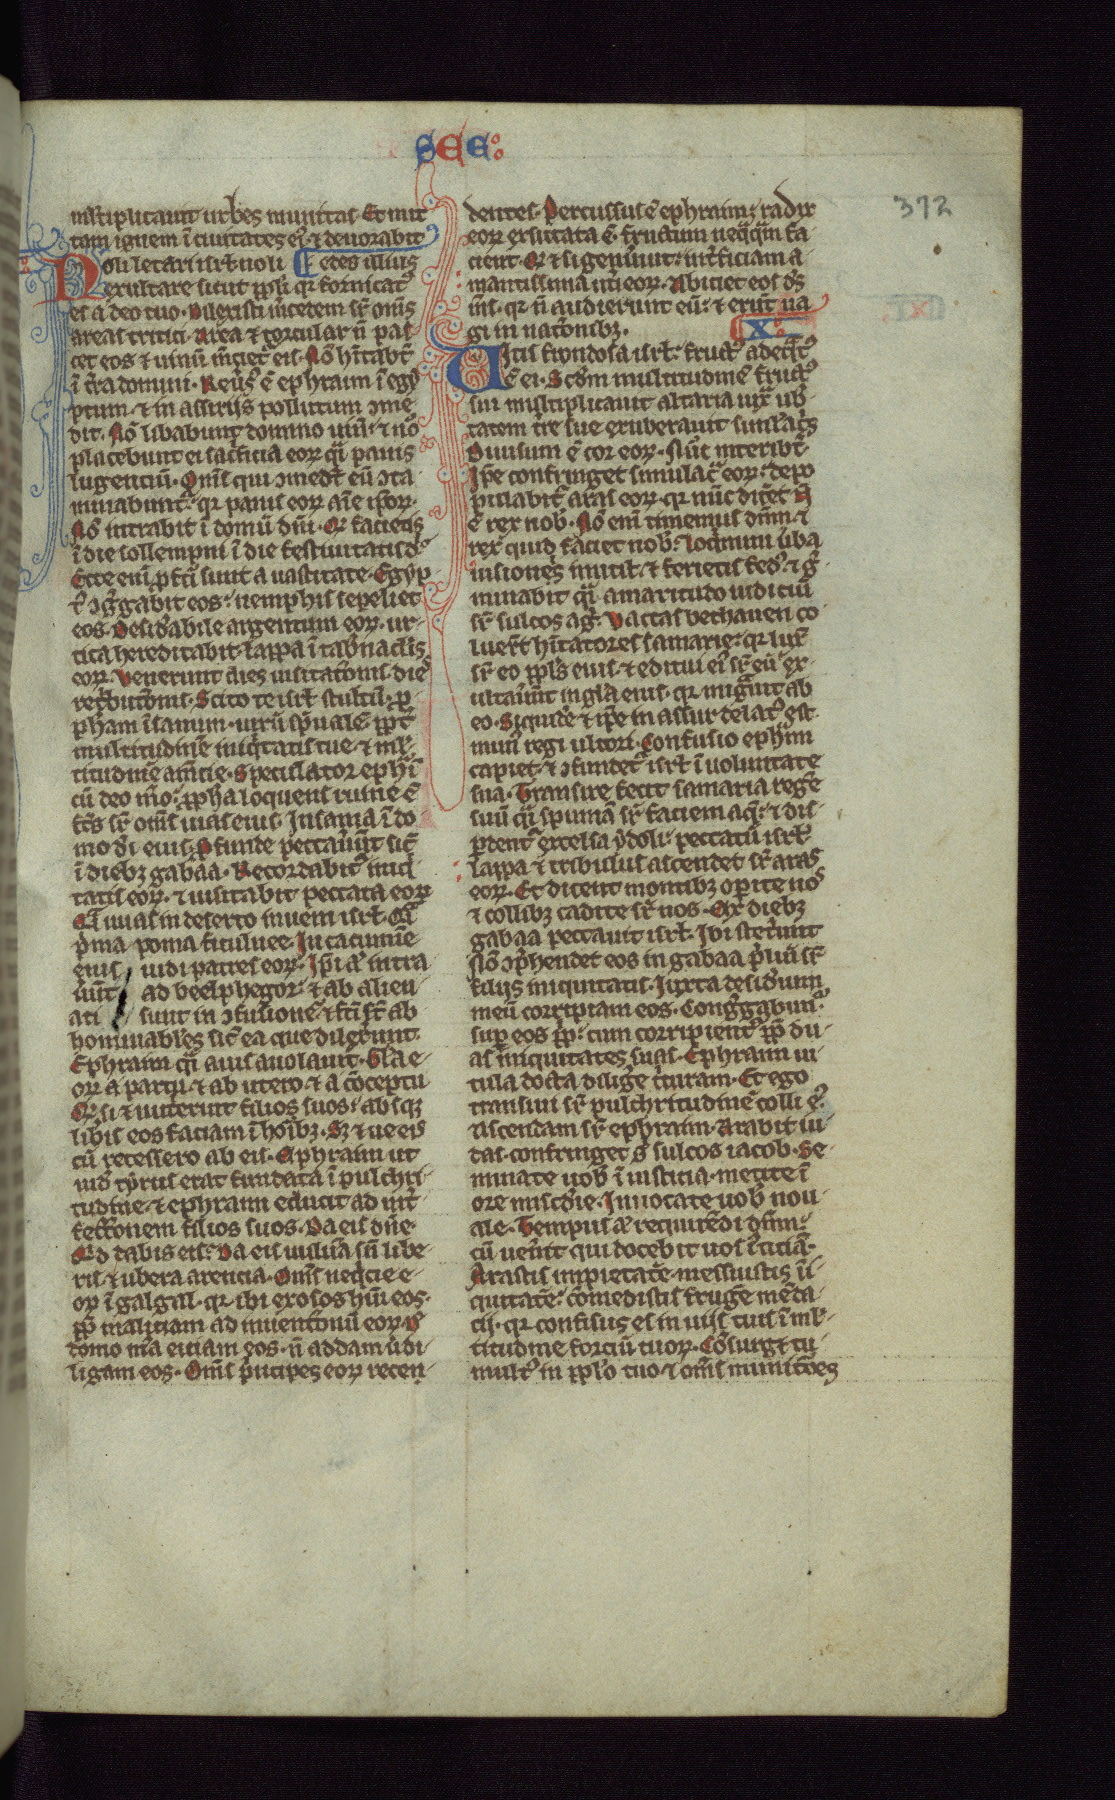 SEE
372
multiplicauit urbes munitas. Et mit
tam ignem ī ciuitates eī. & deuorabit
Noli letari isrl̄ noli edes illius
exultare sicut ppl̄i qr fornicat᷒
es a deo tuo. Dilexisti m̄cedem sr̄ om̄s
areas tritici. Area & torcular n̄ pas
cet eos & uinū m̄ciet᷑ eis. Nō hītabt̄
ī t̄ra domini. Reuers᷒ ē ephraim ī egy
ptum. & in assirijs pollutum ɔme
dit. Nō libabunt᷑ domino uinū. & nō
placebunt ei sac̄ficia eoꝝ qͣi panis
lugentiū. Om̄s qui ɔmedt̄ eū ɔta
minabunt᷑. qr panis eoꝝ aīe ipoꝝ.
Nō intrabit ī domū dn̄i. Qd facietis
ī die sollempni ī die festiuitatis d᷒
Ecce enī ꝓfcti sunt a uastitate. Egyp
t᷒ ɔḡgabit eos. memphis sepeliet
eos. Desid̄abile argentum eoꝝ. ur
tica hereditabit. lappa ī tab̄naclis
eoꝝ. Venerunt dies uisitatōnis. die
ret̄butōnis. Scito te isrl̄ stultū. ꝓ
pham īsanum. uirū sp̄ualē. ꝓpt̄
multitudinē iniqͥtatis tue. & ml̄
titudinē am̄cie. Speculator ephī
cū deo m̄o. ꝓpha loquens ruine ē
fc̄s sr̄ om̄s uias eius. Insania ī do
mo di eius. ꝓfunde peccauer̄t sic̄
ī diebꝫ gabaa. Recordabit᷑ iniq
tatis eoꝝ. & uisitabit peccata eoꝝ
Qͣi uuas in deserto inueni isrl̄. Qͣi
p̄ma poma ficulnee. In cacumīe
eius uidi patres eoꝝ. Ip̄i aū intra
uūt ad beelphegor. & ab alien
ati sunt in ɔfusionē. & fc̄i st̄ ab
hominables sic̄ ea que dilexunt.
Ephraim qͣi auis auolauit. Gl̄a e
oꝝ a partu. & ab utero. & a ɔceptu
Qd si & nutierunt filios suos. absqꝫ
libīs eos faciam ī hoībꝫ. Sꝫ & ue eis
cū recessero ab eis. Ephraim ut
uidi tyrus erat fundata ī pulchri
tudine. & ephraim educit ad int̄
fectionem filios suos. Da eis dn̄e.
Qid dabis eis? Da eis uuluā sn̄ libe
ris. & ubera arentia. Om̄s neqͥcie e
oꝝ ī galgal. qr ibi exosos hui eos.
ꝓp̄ malitiam ad inuentōnū eoꝝ. d̄
domo mea eiciam eos. n̄ addam ut di
ligam eos. Om̄s p̄ncipes eoꝝ recen
dentes. Percussus ē ephraim. radix
eoꝝ exsiccata ē. fructum neqͣqͣm fa
cient. Qd & si genuint. int̄ficiam a
mantissima ut̄i eoꝝ. Abiciet eos ds̄
m̄s. qr n̄ audierunt eū. & erūt ua
gi in natōnibꝫ.
X
Vitis frondosa isrl̄. fruct᷒ adeqͣt᷒
ē ei. Sc̄dm multitudinē fruct᷒
sui multiplicauit altaria iux̄ ub
tatem t̄re sue exuberauit simlac̄s
Diuisum ē cor eoꝝ. Nūc interibt̄.
Ip̄e confringet simulac̄ eoꝝ. depo
pulabit᷑ aras eoꝝ. qr nūc dicēt n̄
ē rex nob̄. Nō enī timemus dn̄m. &
rex quid faciet nob̄. loqͥmini uba
uisiones inutiles & ferietis fed᷒. & ḡ
minabit qͣi amaritudo iudiciū
sr̄ sulcos agͥ. Vaccas bethauen co
luer̄t hītatores samarie. qr lux̄
sr̄ eo ppl̄s eius. & editui eī sr̄ eū ex
ultauūt in gl̄a eius. qr migͣuit ab
eo. Siquidē & ip̄e in assur delat᷒ est.
mun᷒ regi ultori. Confusio ephim
capiet. & ɔfundet᷑ isrl̄ ī uoluntate
sua. Transire fecit samaria regē
suū qͣi spumā sr̄ faciem aqͣ. & dis
pdent᷑ excelsa ydoli. peccatū isrl̄.
lappa & tribulus ascendet sr̄ aras
eoꝝ. Et dicent montibꝫ opite nos
& collibꝫ cadite sr̄ nos. Ex diebꝫ
gabaa peccauit isrl̄. Ibi steter̄unt
Nō ɔp̄hendet eos in gabaa p̄liū sr̄
filijs iniquitatis. Iuxta desid̄ium
meū corripiam eos. Conḡgabunt᷑
sup eos ppl̄i. cum corripient᷑ ꝓp̄ du
as iniquitates suas. Ephraim ui
tula docta diligē t̄turam. Et ego
transiui sr̄ pulchritudinē colli e᷒.
Ascendam sr̄ ephraim. Arabit iu
das. confringet s᷒ sulcos iacob. Se
minate uob̄ ī iusticia. metite ī
ore miscd̄ie. Innouate uob̄ nou
ale. Tempus aū requirēdi dn̄m.
cū uen̄it qui docebit uos iticiā.
Arastis impietatē. messuistis ini
quitatē. comedistis frugē mēda
cij. qr confisus es in uijs tuis ī ml̄
titudine forciū tuoꝝ. Cōsurget tu
mult᷒ in ppl̄o tuo. & om̄s munitōes